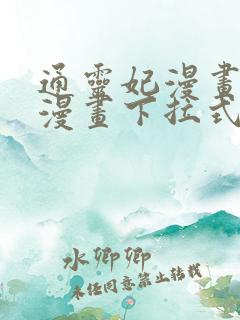 通靈妃漫畫
漫畫下拉式
水卿卿
未经同意禁止转载